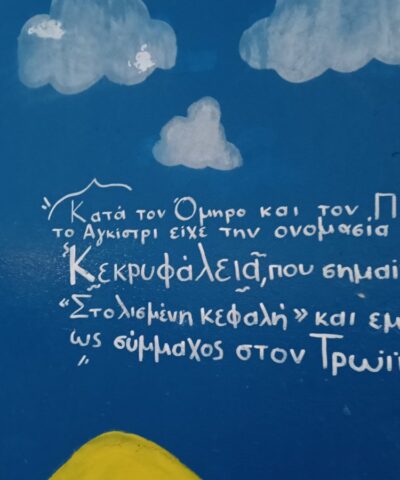 Κατά τον Όμηρο και τον Π
το Αγκίστρι είχε την ονομασία
Κεκρυφάλεια, που σημαί
“Στολισμένη κεφαλή” και εμ
ως σύμμαχος στον Τρωϊ